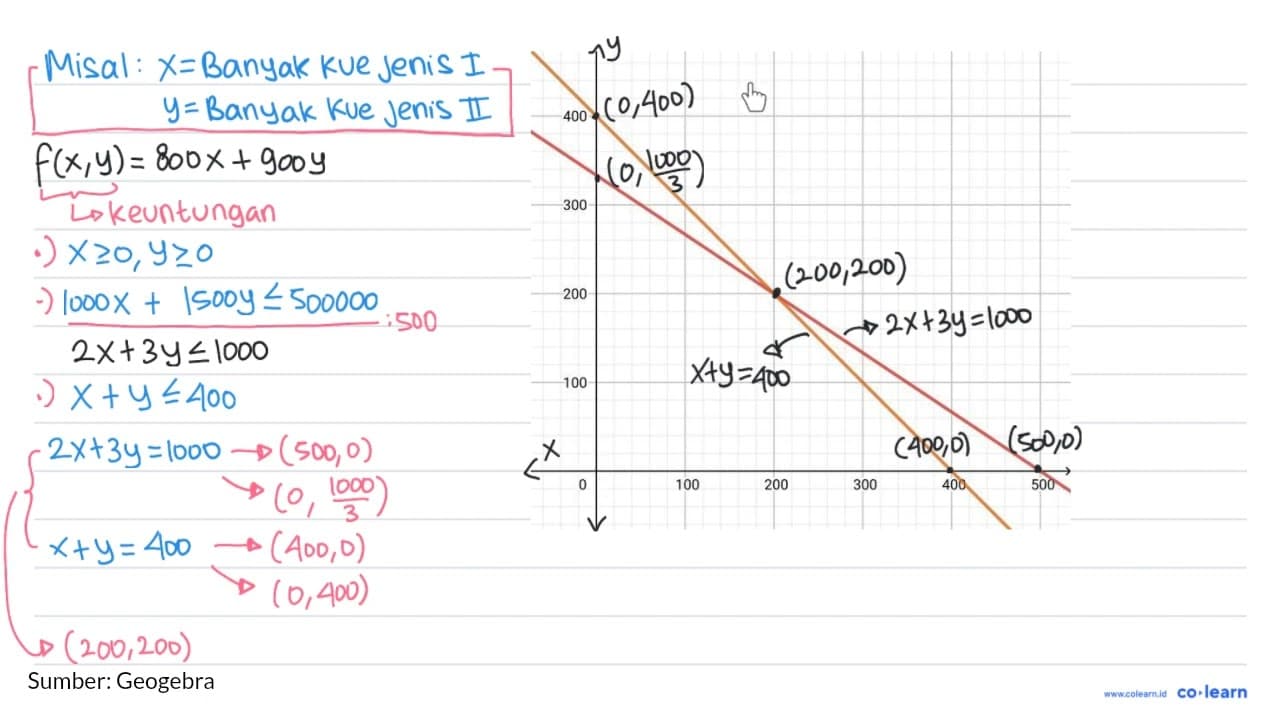 Misal: x = Banyak kue jenis I
y = Banyak kue jenis II
f(x,y) = 800x + 900y
↳ keuntungan
•) x ≥ 0, y ≥ 0
•) 1000x + 1500y ≤ 500000 :500
2x + 3y ≤ 1000
•) x + y ≤ 400
2x + 3y = 1000 → (500,0)
→ (0, 1000/3)
x + y = 400 → (400,0)
→ (0,400)
→ (200,200)
Sumber: Geogebra
y
400 (0,400)
(0, 1000/3)
300
200 (200,200)
→ 2x+3y=1000
100 x+y=400
x (400,0) (500,0)
0 100 200 300 400 500
www.colearn.id co·learn